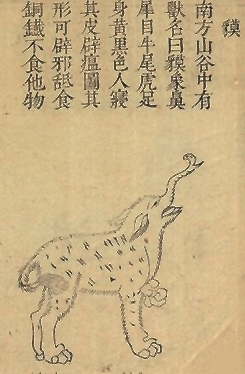 貘
南方山谷中有
獸名曰貘象鼻
犀目牛尾虎足
身黄黑色人寢
其皮辟瘟圖其
形可辟邪舐食
銅鐵不食他物